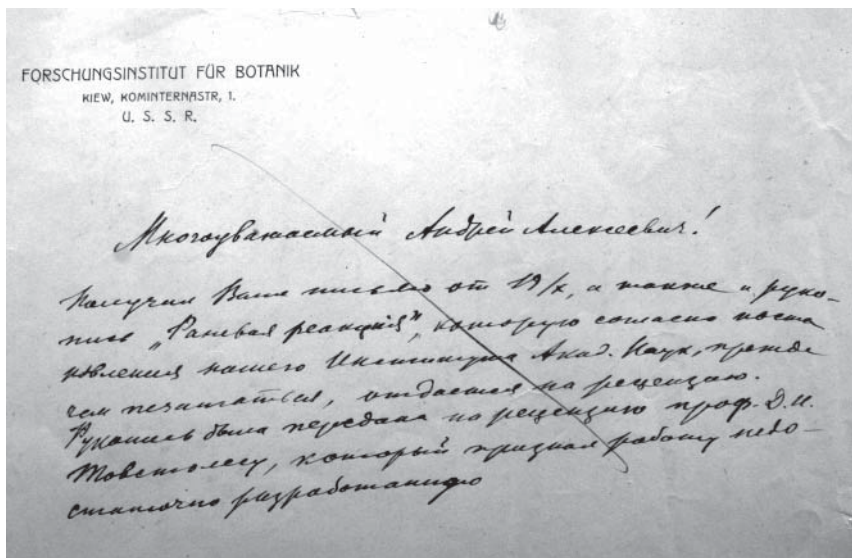 FORSCHUNGSINSTITUT FÜR BOTANIK
KIEW, KOMINTERNASTR, 1.
U. S. S. R.
Многоуважаемый Андрей Алексеевич!
Получил Ваше письмо от 19/X, а также и руко-
пись „Раневая реакция", которую согласно поста
новления нашего Института Акад. Наук, прежде
чем печататься, отдается на рецензию.
Рукопись была передана на рецензию проф. Д.И.
Товстолесу, который признал работу недо-
статочно разработанную